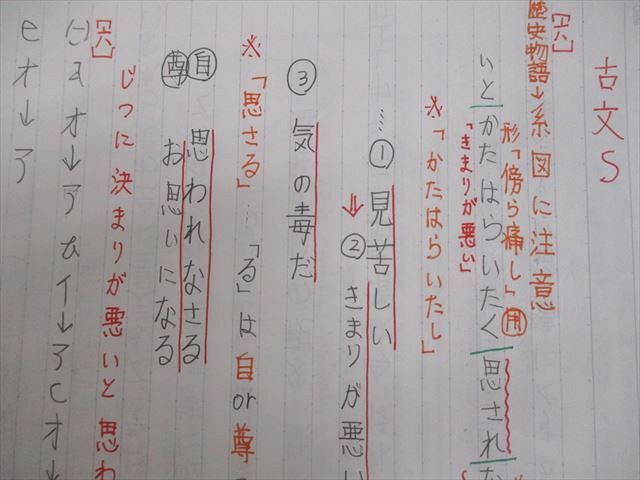 古文S
【六】
歴史物語→系図に注意
形「傍ら痛し」用
「きまりが悪い」
いとかたはらいたく思され
※「かたはらいたし」
…①見苦しい
⇒②きまりが悪い
③気の毒だ
※「思さる」…「る」は自or尊
自 思われなさる
尊 お思いになる
【六】
じつに決まりが悪いと思わ
オ→ア
イ→ア c オ→
e オ→ア